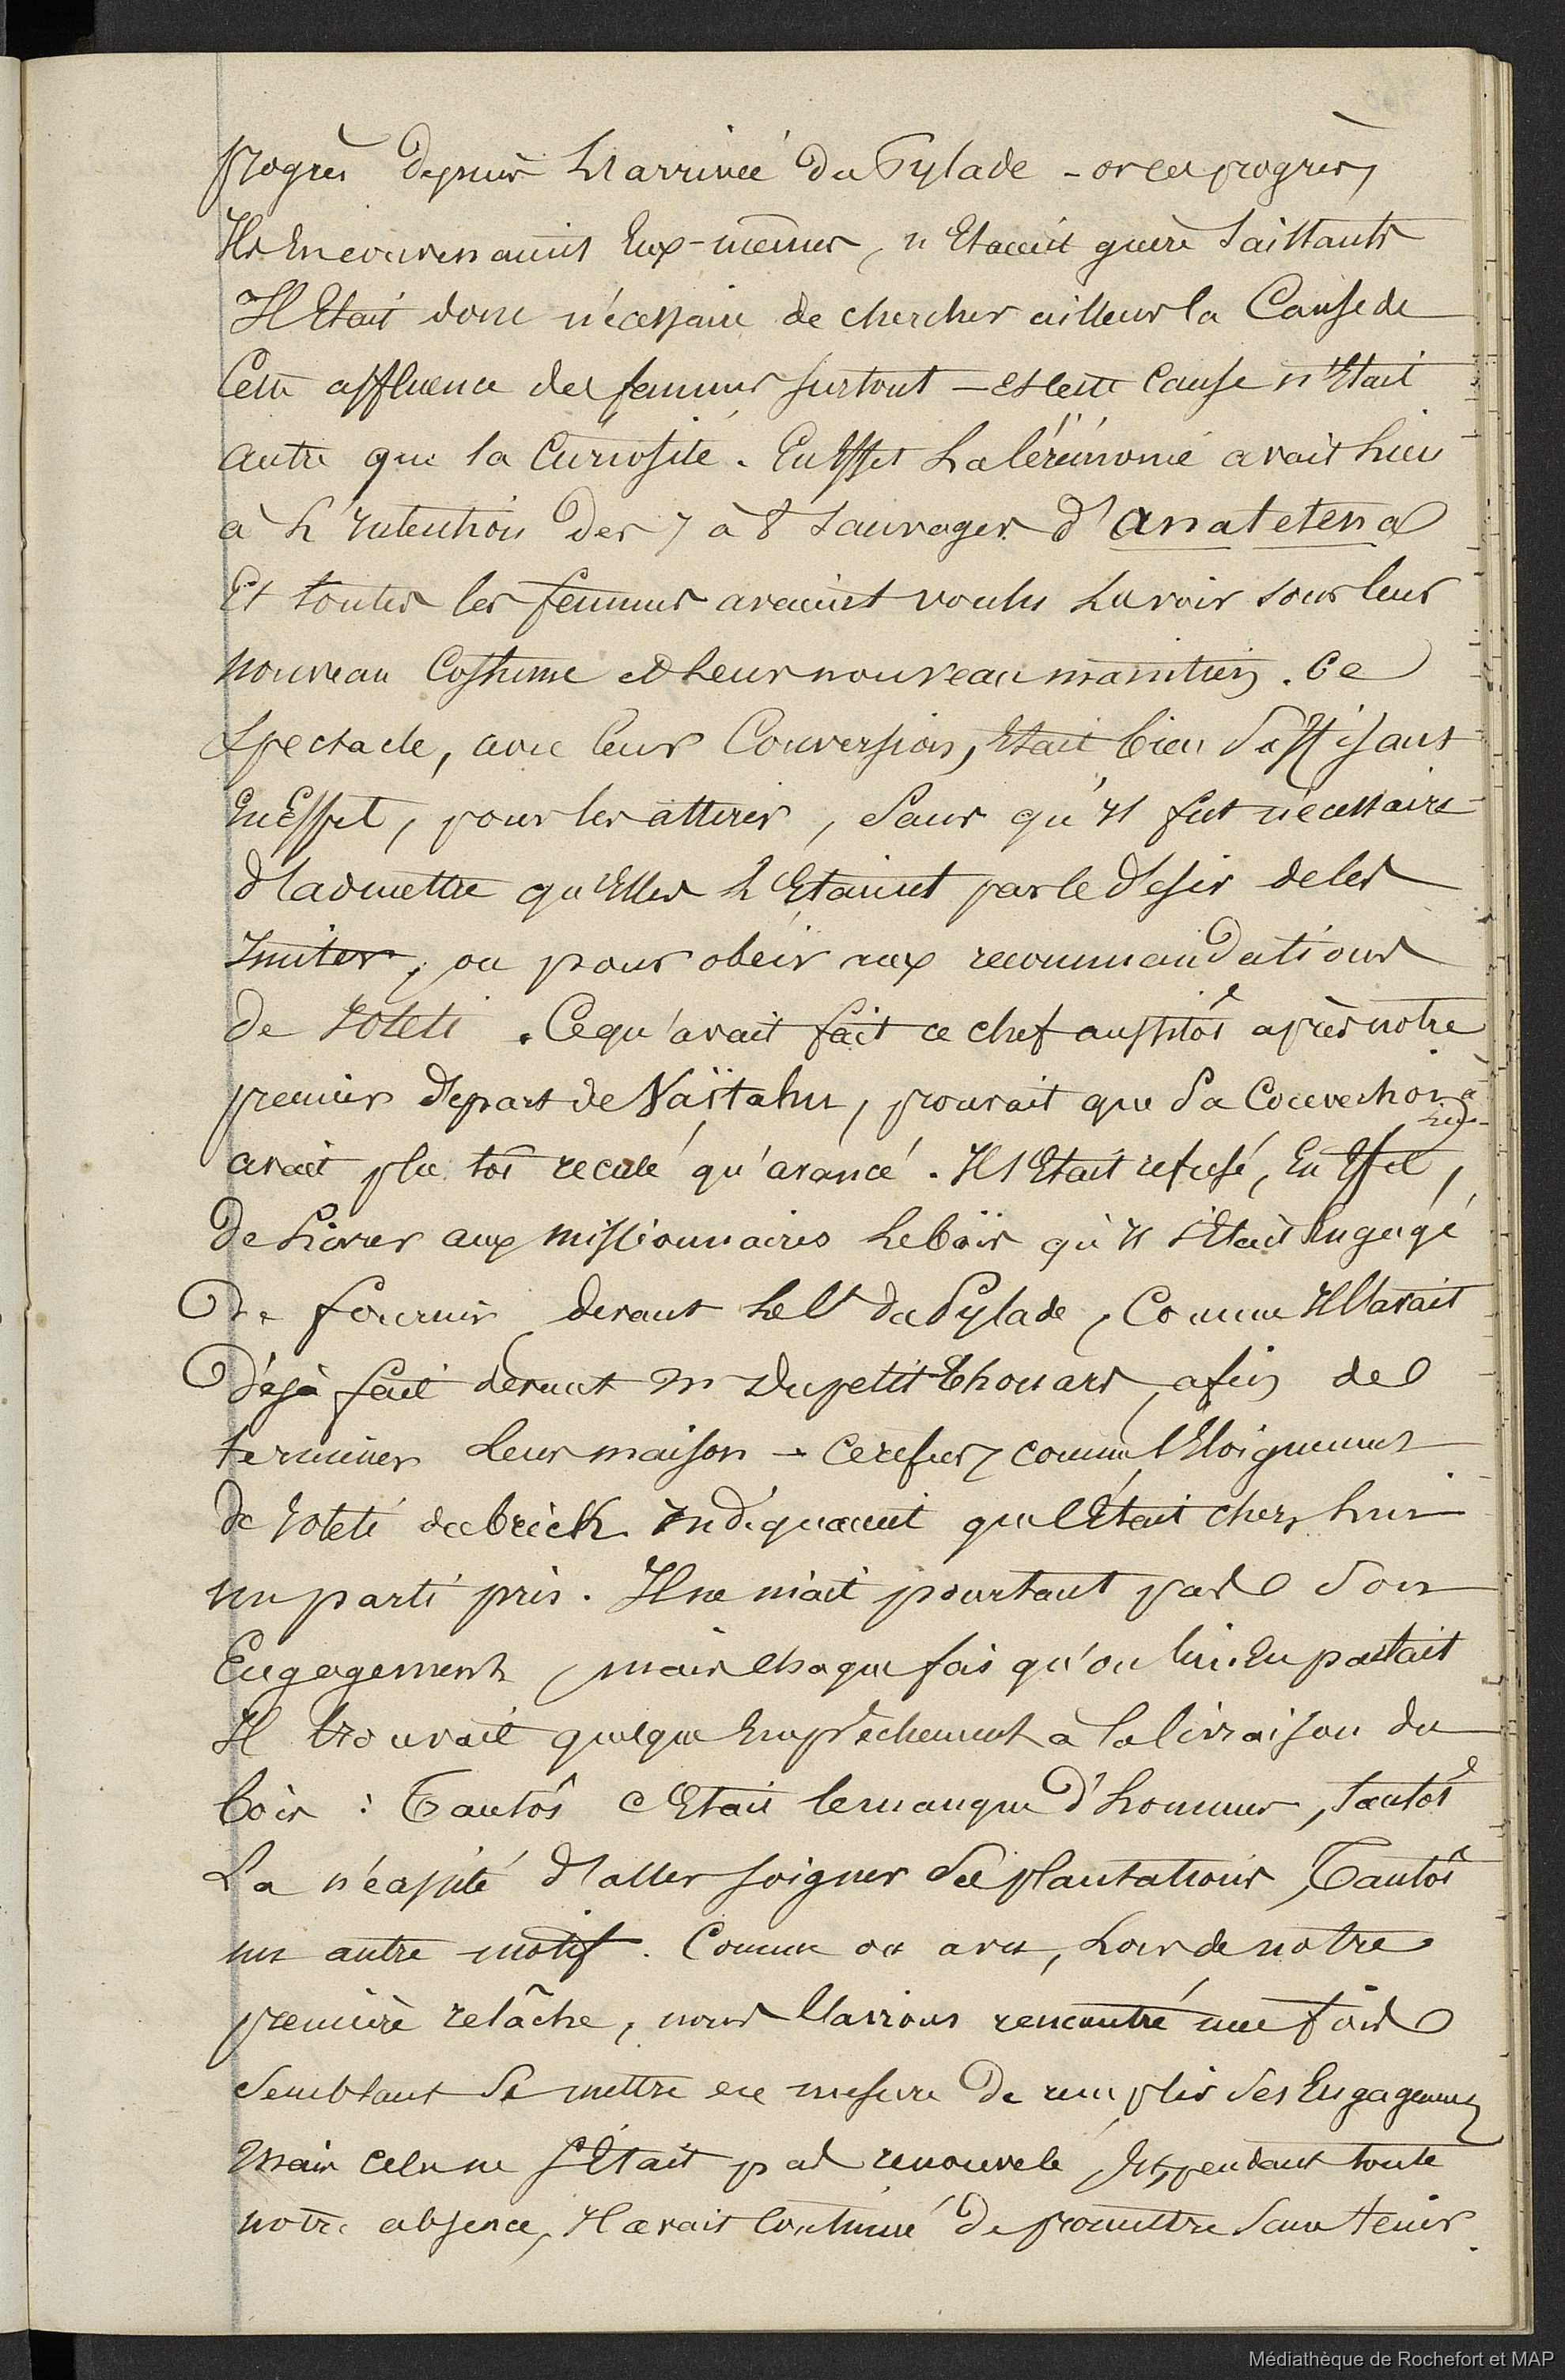 progrès depuis l'arrivée du Pylade - or ces progrès,
Ils en convenaient Eux-mêmes, n'Etaient guère saillants
Il Etait donc nécessaire de chercher ailleurs la Cause de
Cette affluence des femmes surtout - et cette cause n'Etait
autre que la Curiosité. En Effet La Cérémonie avait lieu
à L'intention des 7 à 8 sauvages d'anatetena
Et toutes les femmes avaient voulu les voir sous leur
nouveau Costume et Leur nouveau maintien. Ce
spectacle, avec leur Conversion, Etait bien suffisant
En Effet, pour les attirer, sans qu'il fut nécessaire
d'admettre qu'Elles L'Etaient par le désir de les
Imiter, ou pour obéir aux recommandations
de Ioteté. Ce qu'avait fait ce chef aussitôt après notre
premier départ de Vaïtahu, prouvait que sa Conversion à lui
avait plutôt reculé qu'avancé. Il s'Etait refusé, En Effet,
De Livrer aux missionnaires Le bois qu'il s'Etait Engagé
De fournir devant Le Ct du Pylade, Comme Il l'avait
Déjà fait devant Mr Dupetit Thouars, afin de
terminer Leur maison - Ce refus, comme l'Eloignement
de Ioteté du brick indiquaient que c'Etait chez Lui
un parti pris. Il ne niait pourtant pas son
Engagement, mais chaque fois qu'on lui En parlait
Il trouvait quelque Empêchement à la livraison du
bois : Tantôt c'Etait le manque d'hommes, tantôt
La nécessité d'aller soigner ses plantations, Tantôt
un autre motif. Comme on a vu, Lors de notre
première relâche, nous l'avions rencontré une fois
semblant se mettre en mesure de remplir ses Engagemens
mais cela ne s'Etait pas renouvelé, Et, pendant toute
notre absence, Il avait Continué De promettre sans tenir.
Médiathèque de Rochefort et MAP